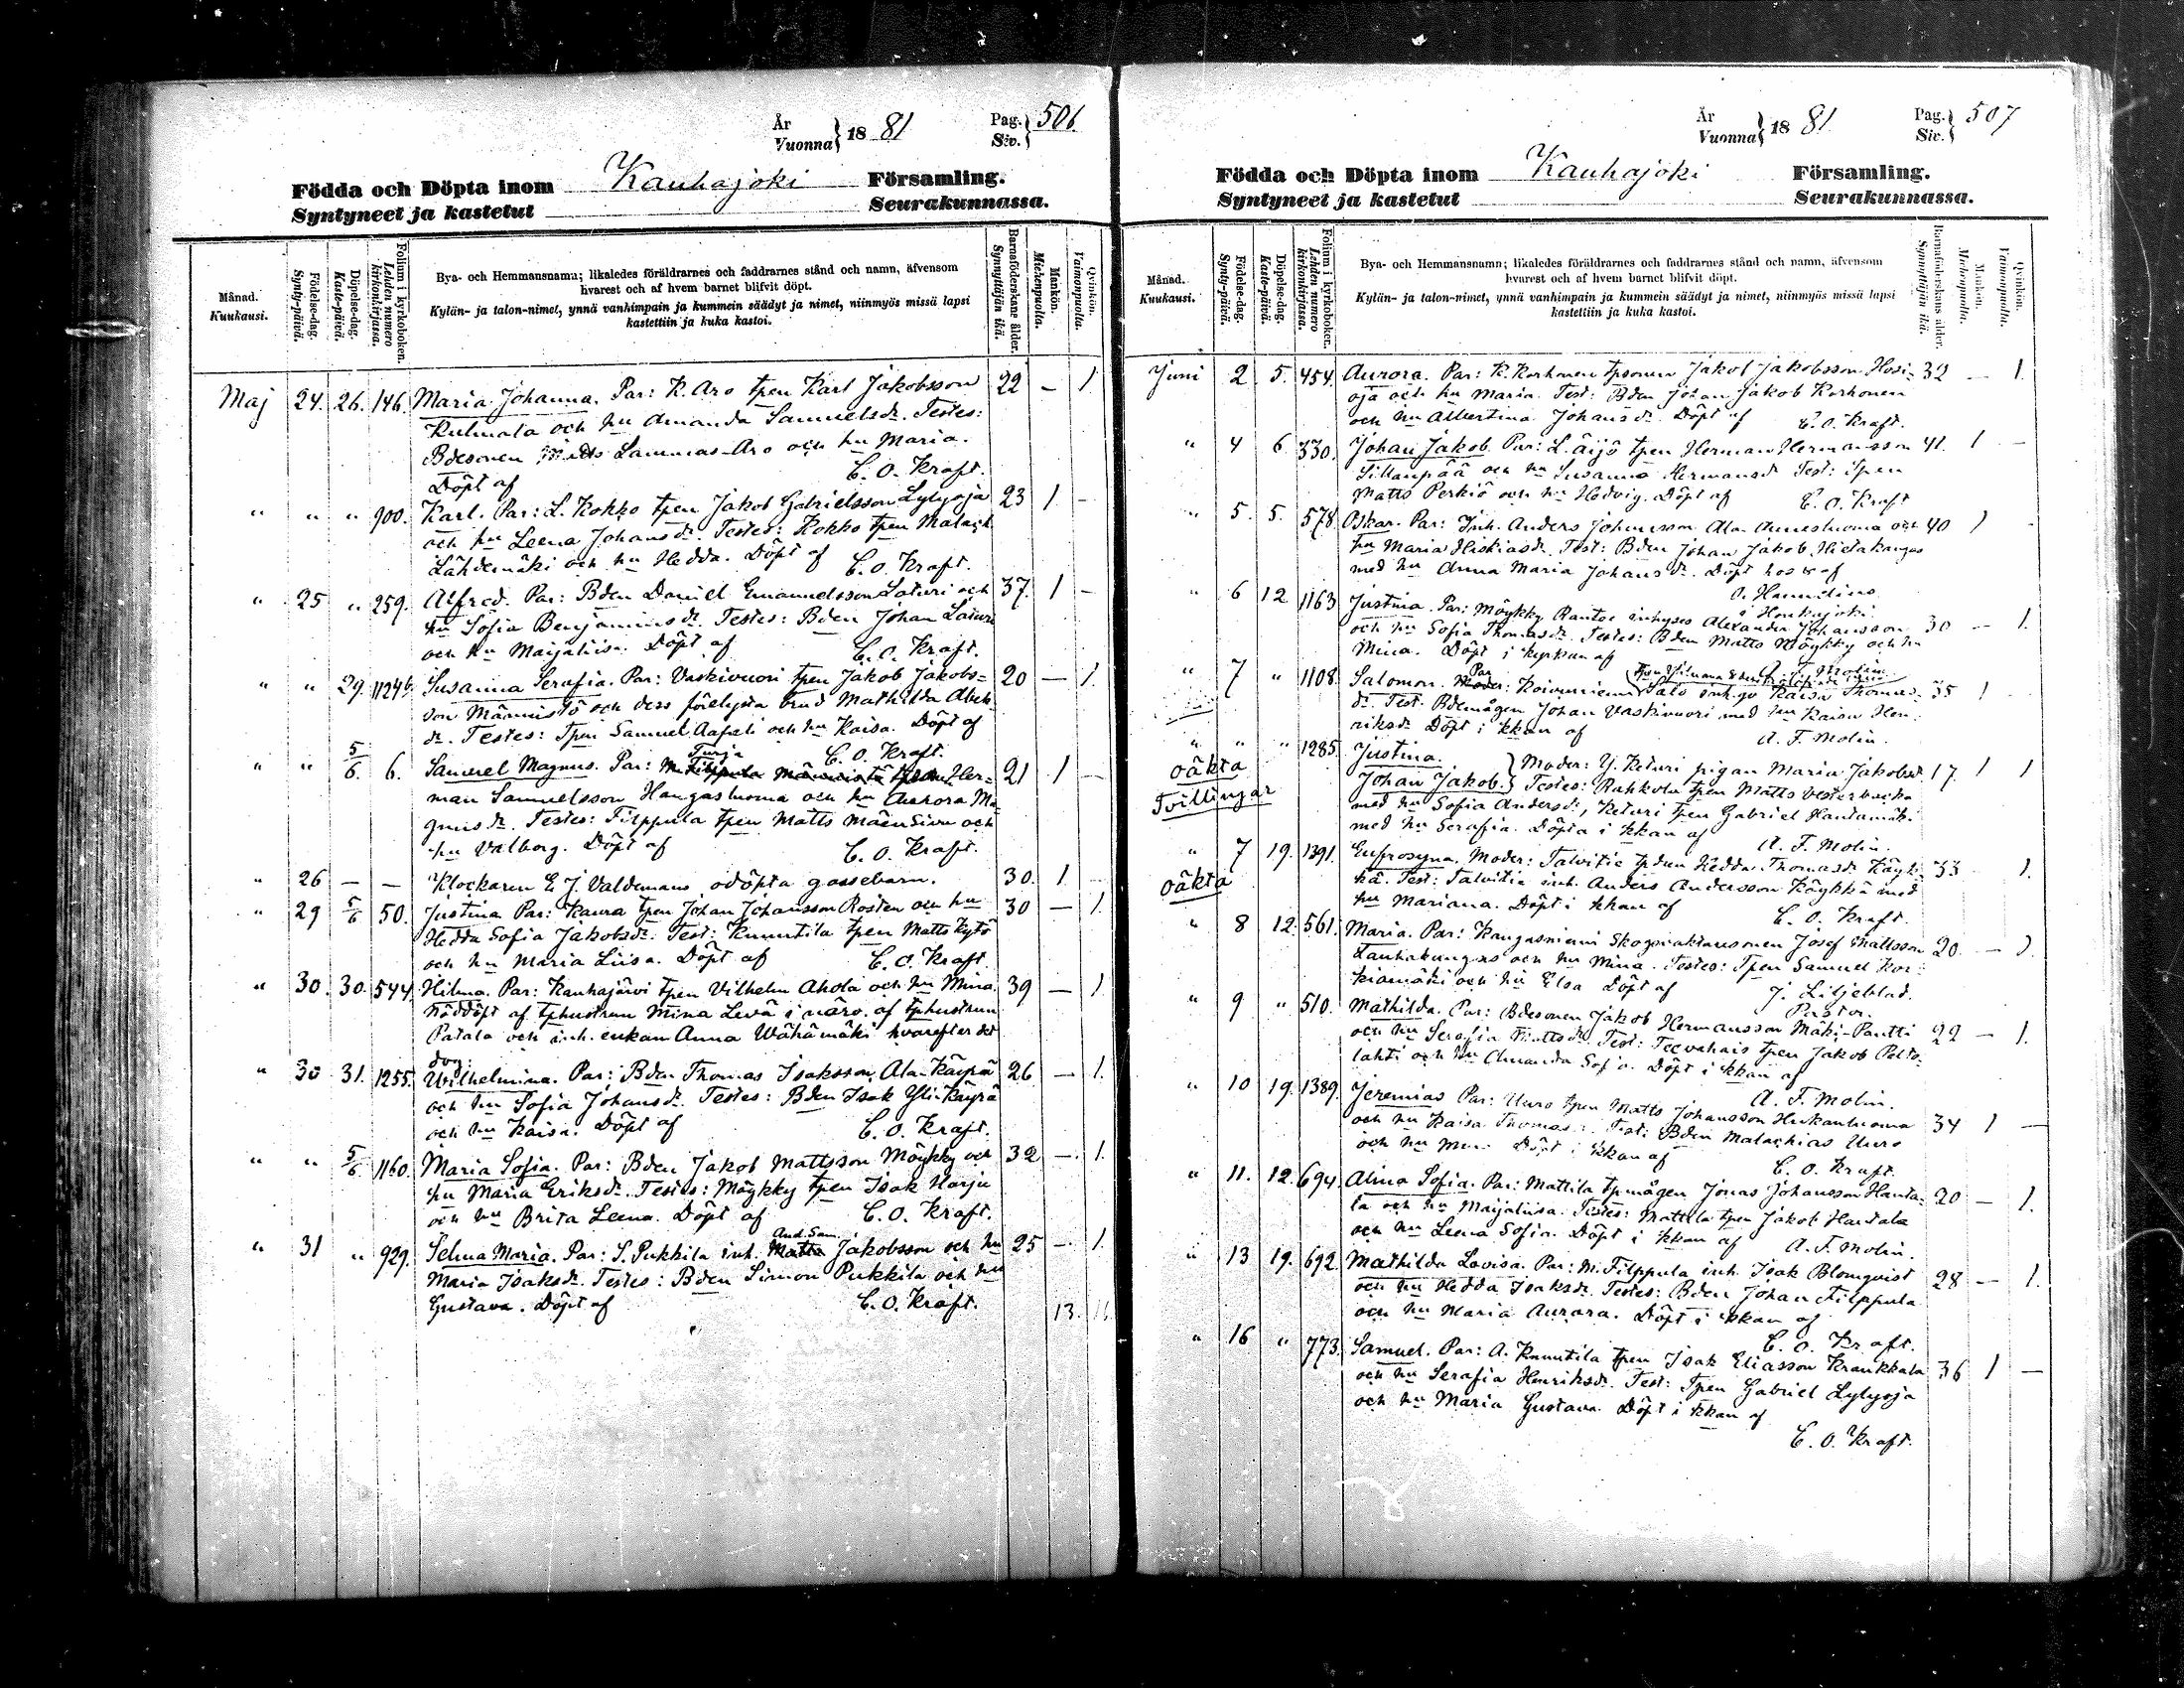 År
Vuonna } 18 81
Pag.
Siv. } 506.
Födda och Döpta inom Kauhajoki Församling.
Syntyneet ja kastetut Seurakunnassa.
Månad.
Kuukausi.
Födelse-dag.
Synty-päivä.
Döpelse-dag.
Kaste-päivä.
Folium i kyrkoboken.
Lehden numero kirkonkirjassa.
Bya- och Hemmansnamn; likaledes föräldrarnes och faddrarnes stånd och namn, äfvensom
hvarest och af hvem barnet blifvit döpt.
Kylän- ja talon-nimet, ynnä vanhimpain ja kummein säädyt ja nimet, niinmyös missä lapsi
kastettiin ja kuka kastoi.
Barnaföderskans ålder.
Synnyttäjän ikä.
Mankön.
Miehenpuolta.
Qvinkön.
Vaimonpuolta.
Maj 24. 26. 146. Maria Johanna. Par: K. Aro tpen Karl Jakobsson 22 — 1.
Kulmala och hu Amanda Samuelsdr. Testes:
Bdesonen Matts Lammas-Aro och hu Maria.
Döpt af C. O. Kraft.
" " " 900. Karl. Par: L. Kokko tpen Jakob Gabrielsson Lylyoja 23 1 -
och hu Leena Johansdr. Testes: Kokko tpen Malach
Lähdemäki och hu Hedda. Döpt af C. O. Kraft.
" 25 " 259. Alfred. Par: Bden Daniel Emanuelsson Laturi och 37. 1 -
hu Sofia Benjaminsdr. Testes: Bden Johan Laturi
och hu Maijaliisa. Döpt af C. O. Kraft.
" " 29. 1124b. Susanna Serafia. Par: Vaskivuori tpen Jakob Jakobs= 20 — 1.
son Männistö och dess förelypta brud Mathilda Abel=
dr. Testes: Tpen Samuel Aafeli och hu Kaisa. Döpt af
C. O. Kraft.
Turja
" " 5/6. 6. Samuel Magnus. Par: M. Filppula Männistö tpson Her= 21 1 —
man Samuelsson Hangasluoma och hu Aurora Ma=
gnusdr. Testes: Filppula tpen Matts Mäensivu och
hu Valborg. Döpt af C. O. Kraft.
" 26 — — Klockaren E. J. Valdemans odöpta gossebarn. 30. 1
" 29 5/6 50. Justina Par: Kaura tpen Johan Johansson Rosten och hu 30 — 1.
Hedda Sofia Jakobsdr. Test: Knuutila tpen Matts Kytö
och hu Maria Liisa. Döpt af C. O. Kraft.
" 30. 30. 544. Hilma. Par: Kauhajärvi tpen Vilhelm Ahola och hu Mina. 39 — 1.
Nöddöpt af tphustrun Mina Levä i närv. af tphustrun
Patala och inh. enkan Anna Wähämäki hvarefter det
dog.
" 30 31. 1255. Wilhelmina. Par: Bden Thomas Isaksson Ala-Käyrä 26 — 1.
och hu Sofia Johansdr. Testes: Bden Isak Yli-Käyrä
och hu Kaisa. Döpt af C. O. Kraft.
" " 5/6 1160. Maria Sofia. Par: Bden Jakob Mattsson Möykky och 32 — 1.
hu Maria Eriksdr. Testes: Möykky tpen Isak Harju
och hu Brita Leena. Döpt af C. O. Kraft.
And. Sam.
" 31 " 929. Selma Maria. Par: S. Pukkila inh. Matts Jakobsson och hu 25 — 1.
Maria Isaksdr. Testes: Bden Simon Pukkila och hu
Gustava. Döpt af C. O. Kraft.
13.
År
Vuonna } 18 81
Pag.
Siv. } 507
Födda och Döpta inom Kauhajoki Församling.
Syntyneet ja kastetut Seurakunnassa.
Månad.
Kuukausi.
Födelse-dag.
Synty-päivä.
Döpelse-dag.
Kaste-päivä.
Folium i kyrkoboken.
Lehden numero kirkonkirjassa.
Bya- och Hemmansnamn; likaledes föräldrarnes och faddrarnes stånd och namn, äfvensom
hvarest och af hvem barnet blifvit döpt.
Kylän- ja talon-nimet, ynnä vanhimpain ja kummein säädyt ja nimet, niinmyös missä lapsi
kastettiin ja kuka kastoi.
Barnaföderskans ålder.
Synnyttäjän ikä.
Mankön.
Miehenpuolta.
Qvinkön.
Vaimonpuolta.
Juni 2 5. 454. Aurora. Par: K. Korhonen tpsonen Jakob Jakobsson Hosi= 32 — 1.
oja och hu Maria. Test: Bden Johan Jakob Korhonen
och hu Albertina Johansdr. Döpt af C. O. Kraft.
" 4 6 330. Johan Jakob. Par: L. Äijö tpen Herman Hermansson 41. 1 —
Sillanpää och hu Susanna Hermansd. Test: Tpen
Matts Perkiö och hu Hedvig. Döpt af C. O. Kraft
" 5 5. 578. Oskar. Par: Inh. Anders Johansson Ala-Annesluoma och 40 1 -
hu Maria Hiskiasdr. Test: Bden Johan Jakob Hietakangas
med hu Anna Maria Johansdr. Döpt hos & af
O. Hanndino
i Honkajoki.
" 6 12 1163 Justina. Par: Möykky Rantoo inhyses Alexander Johansson 30 — 1.
och hu Sofia Thomasdr. Testes: Bden Matts Möykky och hu
Mina. Döpt i kyrkan af A. F. Molin.
Par
" 7 " 1108. Salomon. Moder: Koivuniemi Salo inh. qv Kaisa Thomas= 35 1
dr. Test. Bdemågen Johan Vaskivuori med hu Kaisa Hen=
riksdr. Döpt i kkan af A. F. Molin.
" " " 1285. Justina. } Moder: Y. Keturi pigan Maria Jakobsd. 17 1 1
oäkta Johan Jakob. } Testes: Rahkola tpen Matts Vesterbacka
Tvillingar med hu Sofia Andersdr, Keturi tpen Gabriel Hautamäki
med hu Serafia. Döpta i kkan af A. F. Molin.
" 7 19. 1391. Eufrosyna. Moder: Talvitie tpdren Hedda Thomasdr Käyh= 33 1.
oäkta kä. Test: Talvitie inh. Anders Andersson Käykkä med
hu Mariana. Döpt i kkan af C. O. Kraft.
" 8 12. 561. Maria. Par: Kangasniemi Skogsvaktaresonen Josef Mattsson 20. — 1.
Lauhakangas och hu Mina. Testes: Tpen Samuel Kor=
kiamäki och hu Elsa Döpt af J. Liljeblad.
Pastor.
" 9 " 510. Mathilda. Par: Bdesonen Jakob Hermansson Mäki-Pantti 22 — 1.
och hu Serafia Mattsdr. Test: Teevahais tpen Jakob Polto=
lahti och hu Amanda Sofia. Döpt i kkan af
A. F. Molin.
" 10 19. 1389. Jeremias Par: Uuro tpen Matts Johansson Hukanluoma 34 1 —
och hu Kaisa Thomasdr. Test: Bden Malachias Uuro
och hu Mina Döpt i kkan af C. O. Kraft.
" 11. 12. 694. Alina Sofia. Par: Mattila tpmågen Jonas Johansson Hauta= 20 — 1.
la och hu Maijaliisa. Testes: Mattila tpen Jakob Hautala
och hu Leena Sofia. Döpt i kkan af A. F. Molin.
" 13 19. 692. Mathilda Lovisa. Par: M. Filppula inh. Isak Blomqvist 28 — 1.
och hu Hedda Isaksdr. Testes: Bden Johan Filppula
och hu Maria Aurora. Döpt i kkan af
C. O. Kraft.
" 16 " 773. Samuel. Par: A. Knuutila tpen Isak Eliasson Kraukkala 36 1 —
och hu Serafia Henriksdr. Test: Tpen Gabriel Lylyoja
och hu Maria Gustava. Döpt i kkan af
C. O. Kraft.